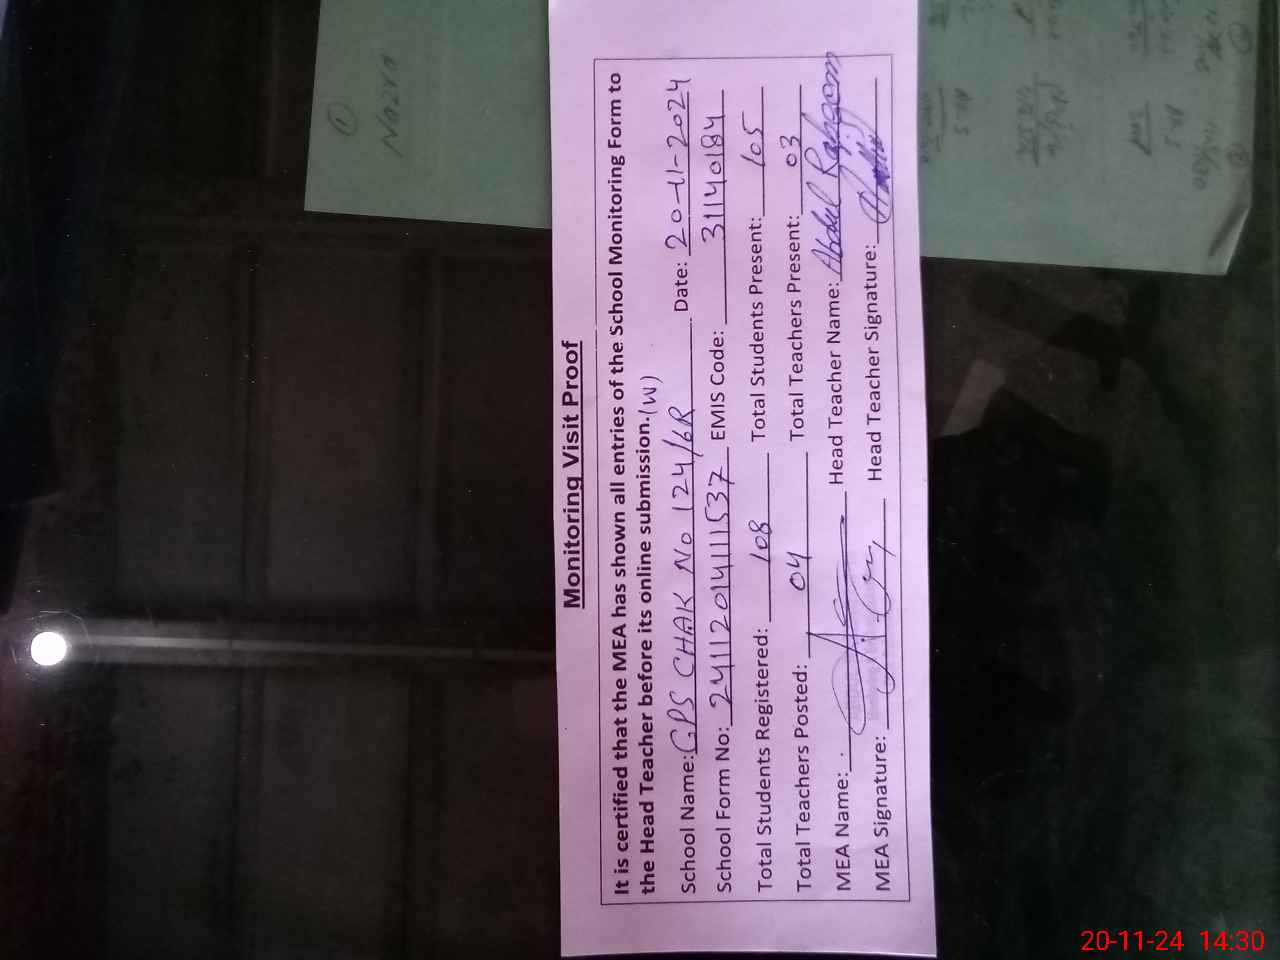 Monitoring Visit Proof
It is certified that the MEA has shown all entries of the School Monitoring Form to
the Head Teacher before its online submission.(W)
School Name: GPS CHAK No 124/6R Date: 20-11-2024
School Form No: 24112014111537 EMIS Code: 31140184
Total Students Registered: 108 Total Students Present: 105
Total Teachers Posted: 04 Total Teachers Present: 03
MEA Name: Head Teacher Name: Abdul Raheem
MEA Signature: Head Teacher Signature:
① Nazra
20-11-24 14:30